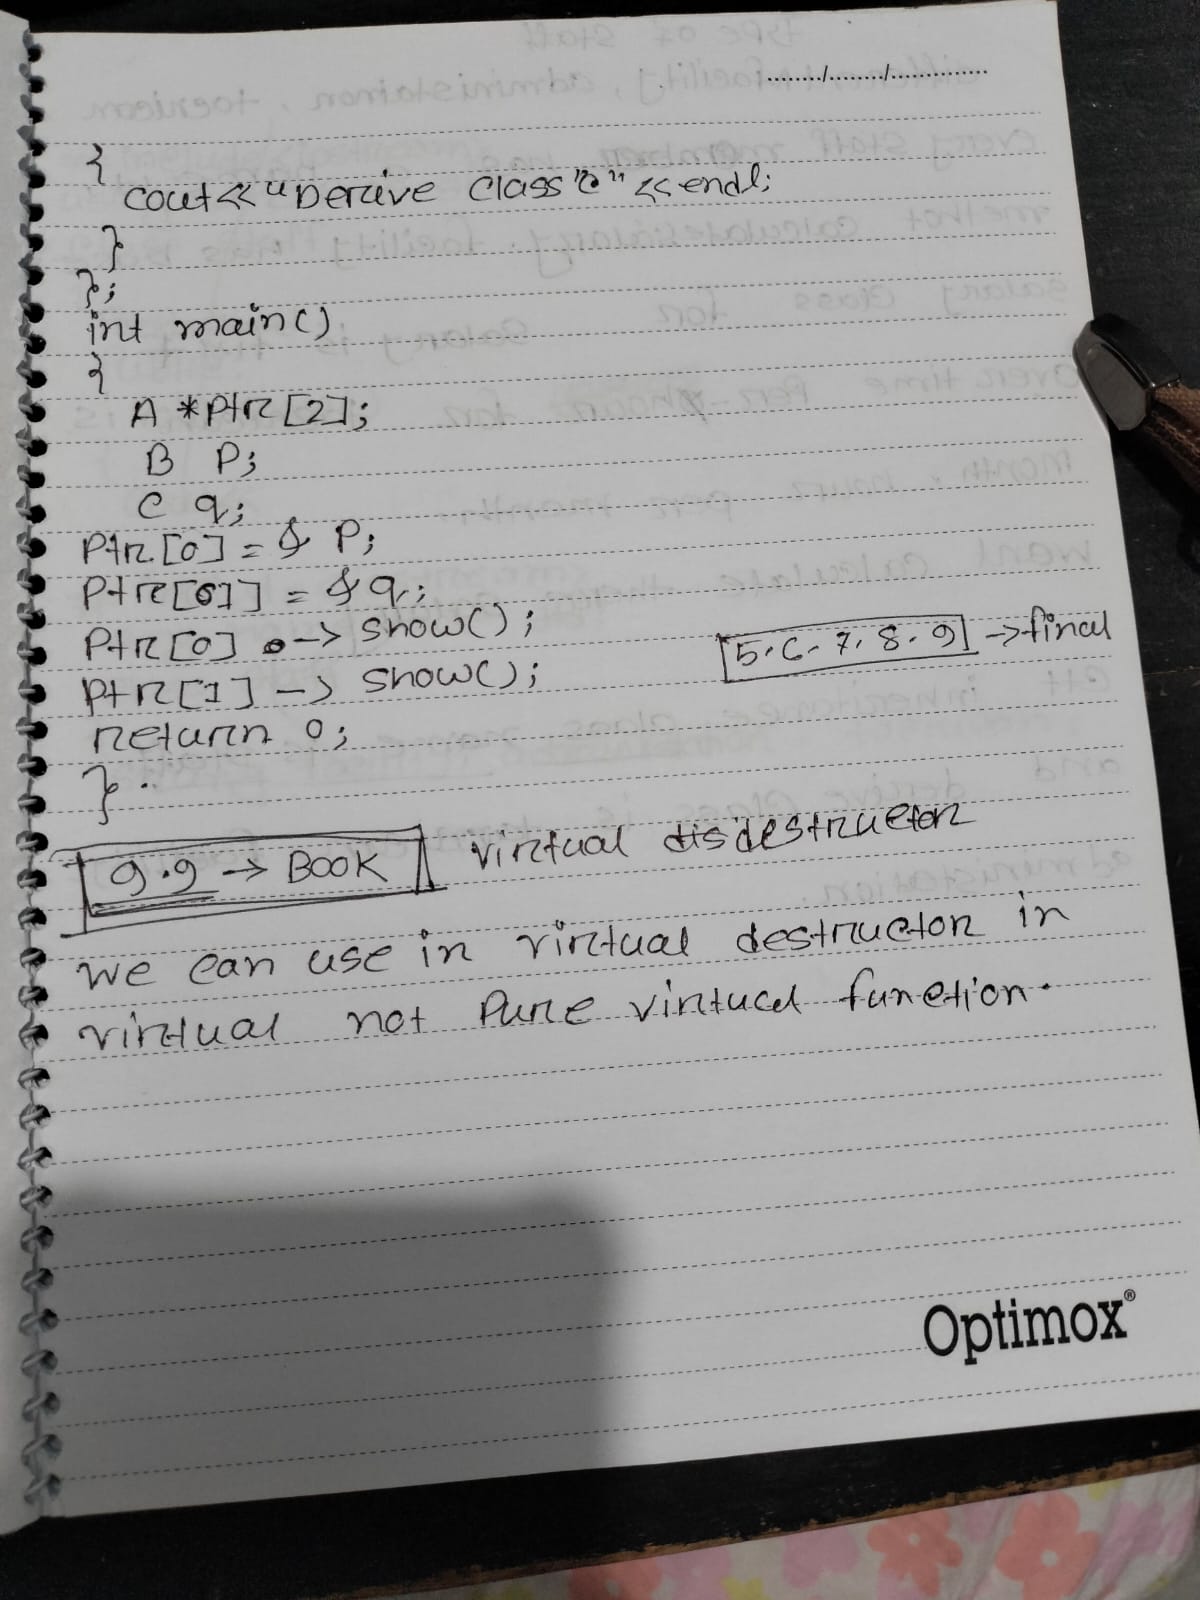 ......../......../..............
{
cout<<"Derive Class 2"<<endl;
}
};
int main()
{
A *ptr[2];
B P;
C q;
Ptr[0] = & P;
Ptr[1] = & q;
Ptr[0] -> show();
5.6.7.8.9 -> final
Ptr[1] -> show();
return 0;
}.
9.9 -> BOOK virtual destructor
we can use in virtual destructor in
virtual not Pure virtual function.
Optimox®